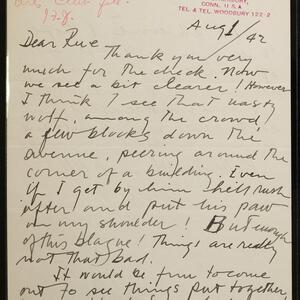 CONN. U.S.A
TEL. & TEL. WOODBURY 122-2
Aug 1/42
Dear Rue
Thank you very
much for the check. Now
we see a bit clearer! However
I think I see that nasty
wolf, among the crowd
a few blocks down the
avenue, peering around the
corner of a building. Even
if I get by him he'll rush
after and put his paw
on my shoulder! But enough
of this blague! Things are really
not that bad.
It would be fun to come
out to see things put together